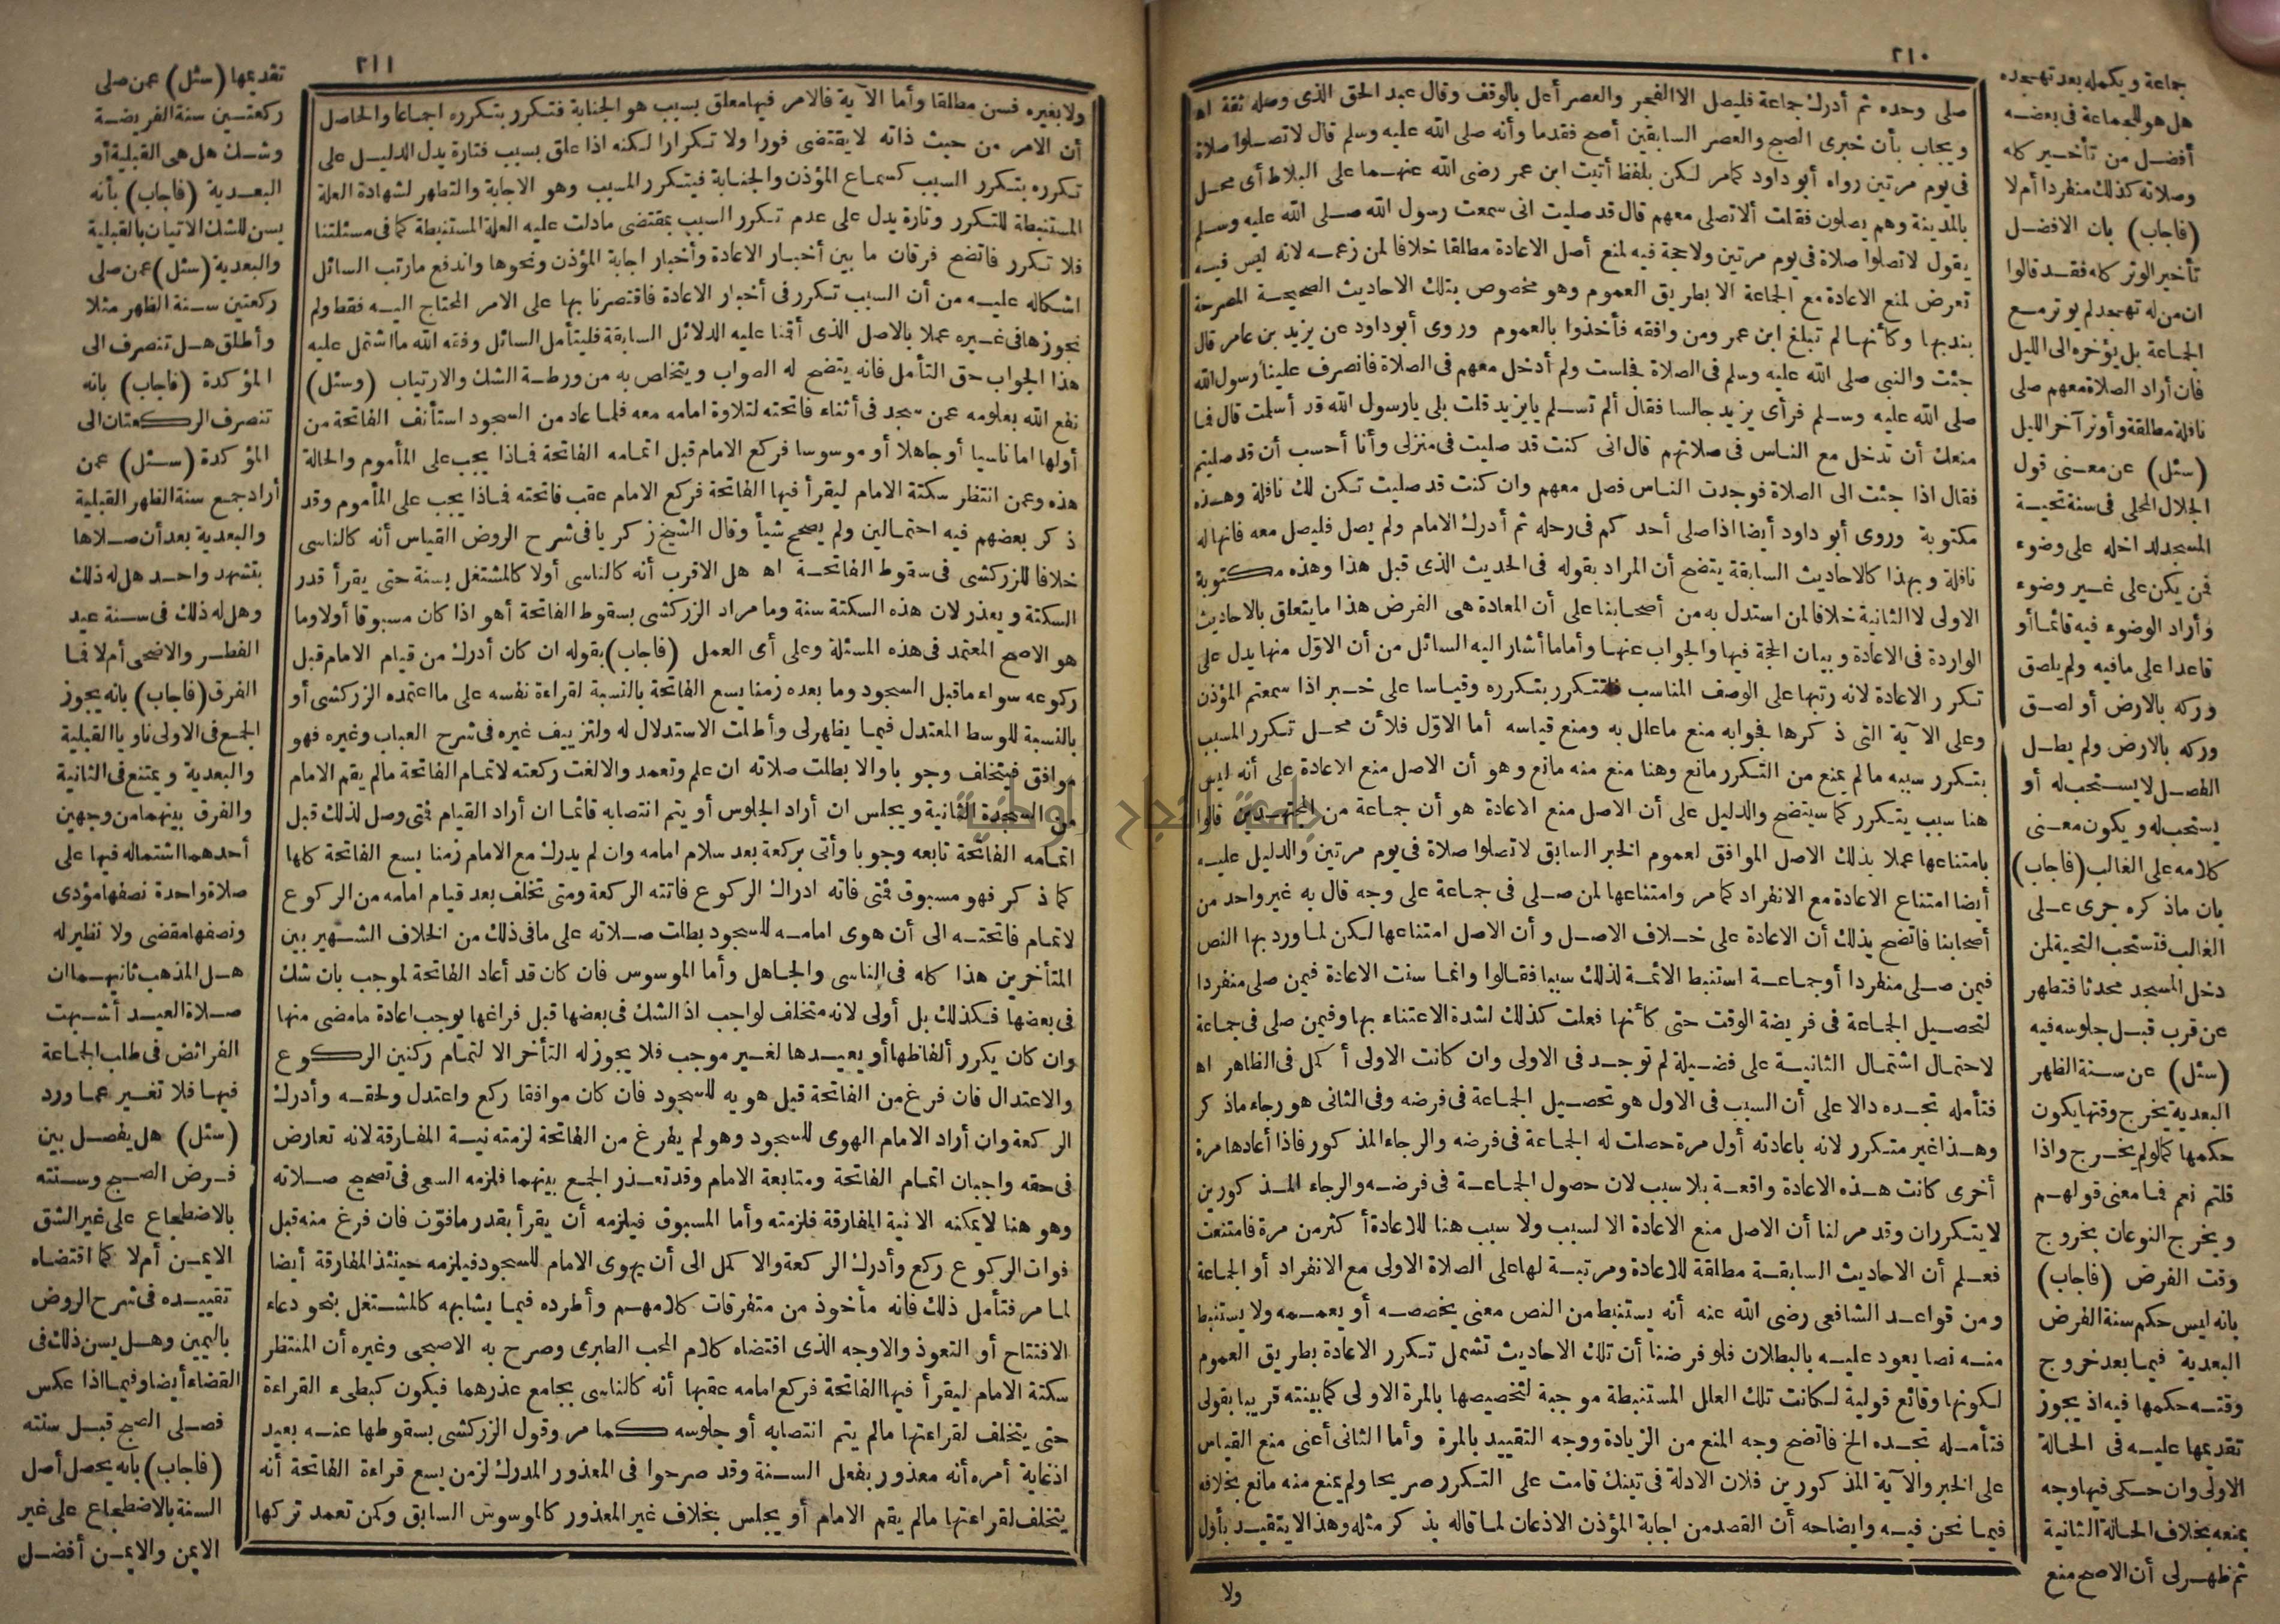 ٢١٠
صلى وحده ثم أدرك جماعة فليصل الا الفجر والعصر أعل بالوقف وقال عبد الحق الذى وصله ثقة اه
ويجاب بأن خبرى الصبح والعصر السابقين أصح فقدما وأنه صلى الله عليه وسلم قال لا تصلوا صلاة
فى يوم مرتين رواه أبو داود كما مر لكن بلفظ أتيت ابن عمر رضى الله عنهما على البلاط أى محل
بالمدينة وهم يصلون فقلت ألا تصلى معهم قال قد صليت انى سمعت رسول الله صلى الله عليه وسلم
يقول لا تصلوا صلاة فى يوم مرتين ولا حجة فيه لمنع أصل الاعادة مطلقا خلافا لمن زعمه لانه ليس فيه
تعرض لمنع الاعادة مع الجماعة الا بطريق العموم وهو مخصوص بتلك الاحاديث الصحيحة المصرحة
بندبها وكأنها لم تبلغ ابن عمر ومن وافقه فأخذوا بالعموم وروى أبو داود عن يزيد بن عامر قال
جئت والنبى صلى الله عليه وسلم فى الصلاة فجلست ولم أدخل معهم فى الصلاة فانصرف علينا رسول الله
صلى الله عليه وسلم فرأى يزيد جالسا فقال ألم تسلم يا يزيد قلت بلى يا رسول الله قد أسلمت قال فما
منعك أن تدخل مع الناس فى صلاتهم قال انى كنت قد صليت فى منزلى وأنا أحسب أن قد صليتم
فقال اذا جئت الى الصلاة فوجدت الناس فصل معهم وان كنت قد صليت تكن لك نافلة وهذه
مكتوبة وروى أبو داود أيضا اذا صلى أحدكم فى رحله ثم أدرك الامام ولم يصل فليصل معه فانها له
نافلة وبهذا كالاحاديث السابقة يتضح أن المراد بقوله فى الحديث الذى قبل هذا وهذه مكتوبة
الاولى لا الثانية خلافا لمن استدل به من أصحابنا على أن المعادة هى الفرض هذا ما يتعلق بالاحاديث
الواردة فى الاعادة وبيان الحجة فيها والجواب عنها وأما ما أشار اليه السائل من أن الاول منها يدل على
تكرر الاعادة لانه رتبها على الوصف المناسب فتتكرر بتكرره وقياسا على خبر اذا سمعتم المؤذن
وعلى الآية التى ذكرها فجوابه منع ما علل به ومنع قياسه أما الاول فلأن محل تكرر المسبب
بتكرر سببه ما لم يمنع من التكرر مانع وهنا منع منه مانع وهو أن الاصل منع الاعادة على أنه ليس
هنا سبب يتكرر كما سيتضح والدليل على أن الاصل منع الاعادة هو أن جماعة من المجتهدين قالوا
بامتناعها عملا بذلك الاصل الموافق لعموم الخبر السابق لا تصلوا صلاة فى يوم مرتين والدليل عليه
أيضا امتناع الاعادة مع الانفراد كما مر وامتناعها لمن صلى فى جماعة على وجه قال به غير واحد من
أصحابنا فاتضح بذلك أن الاعادة على خلاف الاصل وأن الاصل امتناعها لكن لما ورد بها النص
فيمن صلى منفردا أو جماعة استنبط الائمة لذلك سببا فقالوا وانما سنت الاعادة فيمن صلى منفردا
لتحصيل الجماعة فى فريضة الوقت حتى كأنها فعلت كذلك لشدة الاعتناء بها وفيمن صلى فى جماعة
لاحتمال اشتمال الثانية على فضيلة لم توجد فى الاولى وان كانت الاولى أكمل فى الظاهر اه
فتأمله تجده دالا على أن السبب فى الاول هو تحصيل الجماعة فى فرضه وفى الثانى هو رجاء ما ذكر
وهذا غير متكرر لانه باعادته أول مرة حصلت له الجماعة فى فرضه والرجاء المذكور فاذا أعادها مرة
أخرى كانت هذه الاعادة واقعة بلا سبب لان حصول الجماعة فى فرضه والرجاء المذكورين
لا يتكرران وقد مر لنا أن الاصل منع الاعادة الا لسبب ولا سبب هنا للاعادة أكثر من مرة فامتنعت
فعلم أن الاحاديث السابقة مطلقة للاعادة ومرتبة لها على الصلاة الاولى مع الانفراد أو الجماعة
ومن قواعد الشافعى رضى الله عنه أنه يستنبط من النص معنى يخصصه أو يعممه ولا يستنبط
منه نصا يعود عليه بالبطلان فلو فرضنا أن تلك الاحاديث تشمل تكرر الاعادة بطريق العموم
لكونها وقائع قولية لكانت تلك العلل المستنبطة موجبة لتخصيصها بالمرة الاولى كما بينته قريبا بقولى
فتأمله تجده الخ فاتضح وجه المنع من الزيادة ووجه التقييد بالمرة وأما الثانى أعنى منع القياس
على الخبر والآية المذكورين فلان الادلة فى تينك قامت على التكرر صريحا ولم يمنع منه مانع بخلافه
فيما نحن فيه وايضاحه أن القصد من اجابة المؤذن الاذعان لما قاله بذكر مثله وهذا لا يتقيد بأول
ولا
جماعة ويكمله بعد تهجده
هل هو للجماعة فى بعضه
أفضل من تأخير كله
وصلاته كذلك منفردا أم لا
(فاجاب) بان الافضل
تأخير الوتر كله فقد قالوا
ان من له تهجد لم يوتر مع
الجماعة بل يؤخره الى الليل
فان أراد الصلاة معهم صلى
نافلة مطلقة وأوتر آخر الليل
(سئل) عن معنى قول
الجلال المحلى فى سنة تحية
المسجد لداخله على وضوء
فمن يكن على غير وضوء
وأراد الوضوء فيه قائما أو
قاعدا على ما فيه ولم يلصق
وركه بالارض أو لصق
وركه بالارض ولم يطل
الفصل لا يستحب له أو
يستحب له ويكون معنى
كلامه على الغالب (فاجاب)
بان ما ذكره جرى على
الغالب فتستحب التحية لمن
دخل المسجد محدثا فتطهر
عن قرب قبل جلوسه فيه
(سئل) عن سنة الظهر
البعدية يخرج وقتها يكون
حكمها كما لو لم يخرج واذا
قلتم نعم فما معنى قولهم
ويخرج النوعان بخروج
وقت الفرض (فاجاب)
بانه ليس حكم سنة الفرض
البعدية فيما بعد خروج
وقته حكمها فيه اذ يجوز
تقديمها عليه فى الحالة
الاولى وان حكى فيها وجه
بمنعه بخلاف الحالة الثانية
ثم ظهر لى أن الاصح منع
٢١١
ولا بغيره فسن مطلقا وأما الآية فالامر فيها معلق بسبب هو الجنابة فتكرر بتكرره اجماعا والحاصل
أن الامر من حيث ذاته لا يقتضى فورا ولا تكرارا لكنه اذا علق بسبب فتارة يدل الدليل على
تكرره بتكرر السبب كسماع المؤذن والجنابة فيتكرر المسبب وهو الاجابة والتطهر لشهادة العلة
المستنبطة للتكرر وتارة يدل على عدم تكرر السبب بمقتضى ما دلت عليه العلة المستنبطة كما فى مسئلتنا
فلا تكرر فاتضح فرقان ما بين أخبار الاعادة وأخبار اجابة المؤذن ونحوها واندفع ما رتب السائل
اشكاله عليه من أن السبب تكرر فى أخبار الاعادة فاقتصرنا بها على الامر المحتاج اليه فقط ولم
نجوزها فى غيره عملا بالاصل الذى أقمنا عليه الدلائل السابقة فليتأمل السائل وفقه الله ما اشتمل عليه
هذا الجواب حق التأمل فانه يتضح له الصواب ويتخلص به من ورطة الشك والارتياب (وسئل)
نفع الله بعلومه عمن سجد فى أثناء فاتحته لتلاوة امامه معه فلما عاد من السجود استأنف الفاتحة من
أولها اما ناسيا أو جاهلا أو موسوسا فركع الامام قبل اتمامه الفاتحة فماذا يجب على المأموم والحالة
هذه وعمن انتظر سكتة الامام ليقرأ فيها الفاتحة فركع الامام عقب فاتحته فماذا يجب على المأموم وقد
ذكر بعضهم فيه احتمالين ولم يصحح شيأ وقال الشيخ زكريا فى شرح الروض القياس أنه كالناسى
خلافا للزركشى فى سقوط الفاتحة اه هل الاقرب أنه كالناسى أولا كالمشتغل بسنة حتى يقرأ قدر
السكتة ويعذر لان هذه السكتة سنة وما مراد الزركشى بسقوط الفاتحة أهو اذا كان مسبوقا أولا وما
هو الاصح المعتمد فى هذه المسئلة وعلى أى العمل (فاجاب) بقوله ان كان أدرك من قيام الامام قبل
ركوعه سواء ما قبل السجود وما بعده زمنا يسع الفاتحة بالنسبة لقراءة نفسه على ما اعتمده الزركشى أو
بالنسبة للوسط المعتدل فيما يظهر لى وأطلت الاستدلال له ولتزييف غيره فى شرح العباب وغيره فهو
موافق فيتخلف وجوبا والا بطلت صلاته ان علم وتعمد والا لغت ركعته لاتمام الفاتحة ما لم يقم الامام
من السجدة الثانية ويجلس ان أراد الجلوس أو يتم انتصابه قائما ان أراد القيام فمتى وصل لذلك قبل
اتمامه الفاتحة تابعه وجوبا وأتى بركعة بعد سلام امامه وان لم يدرك مع الامام زمنا يسع الفاتحة كلها
كما ذكر فهو مسبوق فمتى فاته ادراك الركوع فاتته الركعة ومتى تخلف بعد قيام امامه من الركوع
لاتمام فاتحته الى أن هوى امامه للسجود بطلت صلاته على ما فى ذلك من الخلاف الشهير بين
المتأخرين هذا كله فى الناسى والجاهل وأما الموسوس فان كان قد أعاد الفاتحة لموجب بان شك
فى بعضها فكذلك بل أولى لانه متخلف لواجب اذ الشك فى بعضها قبل فراغها يوجب اعادة ما مضى منها
وان كان يكرر ألفاظها أو يعيدها لغير موجب فلا يجوز له التأخر الا لتمام ركنين الركوع
والاعتدال فان فرغ من الفاتحة قبل هويه للسجود فان كان موافقا ركع واعتدل ولحقه وأدرك
الركعة وان أراد الامام الهوى للسجود وهو لم يفرغ من الفاتحة لزمته نية المفارقة لانه تعارض
فى حقه واجبان اتمام الفاتحة ومتابعة الامام وقد تعذر الجمع بينهما فلزمه السعى فى تصحيح صلاته
وهو هنا لا يمكنه الا نية المفارقة فلزمته وأما المسبوق فيلزمه أن يقرأ بقدر ما فوت فان فرغ منه قبل
فوات الركوع ركع وأدرك الركعة والا كمل الى أن يهوى الامام للسجود فيلزمه حينئذ المفارقة أيضا
لما مر فتأمل ذلك فانه مأخوذ من متفرقات كلامهم وأطرده فيما يشابهه كالمشتغل بنحو دعاء
الافتتاح أو التعوذ والاوجه الذى اقتضاه كلام المحب الطبرى وصرح به الاصبحى وغيره أن المنتظر
سكتة الامام ليقرأ فيها الفاتحة فركع امامه عقبها أنه كالناسى بجامع عذرهما فيكون كبطىء القراءة
حتى يتخلف لقراءتها ما لم يتم انتصابه أو جلوسه كما مر وقول الزركشى بسقوطها عنه بعيد
اذ غاية أمره أنه معذور بفعل السنة وقد صرحوا فى المعذور المدرك لزمن يسع قراءة الفاتحة أنه
يتخلف لقراءتها ما لم يقم الامام أو يجلس بخلاف غير المعذور كالموسوس السابق وكمن تعمد تركها
تقديمها (سئل) عمن صلى
ركعتين سنة الفريضة
وشك هل هى القبلية أو
البعدية (فاجاب) بأنه
يسن للشك الاتيان بالقبلية
والبعدية (سئل) عمن صلى
ركعتين سنة الظهر مثلا
وأطلق هل تنصرف الى
المؤكدة (فاجاب) بانه
تنصرف الركعتان الى
المؤكدة (سئل) عمن
أراد جمع سنة الظهر القبلية
والبعدية بعد أن صلاها
بتشهد واحد هل له ذلك
وهل له ذلك فى سنة عيد
الفطر والاضحى أم لا فما
الفرق (فاجاب) بانه يجوز
الجمع فى الاولى ناويا القبلية
والبعدية ويمتنع فى الثانية
والفرق بينهما من وجهين
أحدهما اشتماله فيها على
صلاة واحدة نصفها مؤدى
ونصفها مقضى ولا نظير له
هل المذهب ثانيهما ان
صلاة العيد أشبهت
الفرائض فى طلب الجماعة
فيها فلا تغير عما ورد
(سئل) هل يفصل بين
فرض الصبح وسنته
بالاضطجاع على غير الشق
الايمن أم لا كما اقتضاه
تقييده فى شرح الروض
باليمين وهل يسن ذلك فى
القضاء أيضا وفيما اذا عكس
فصلى الصبح قبل سنته
(فاجاب) بانه يحصل أصل
السنة بالاضطجاع على غير
الايمن والايمن أفضل